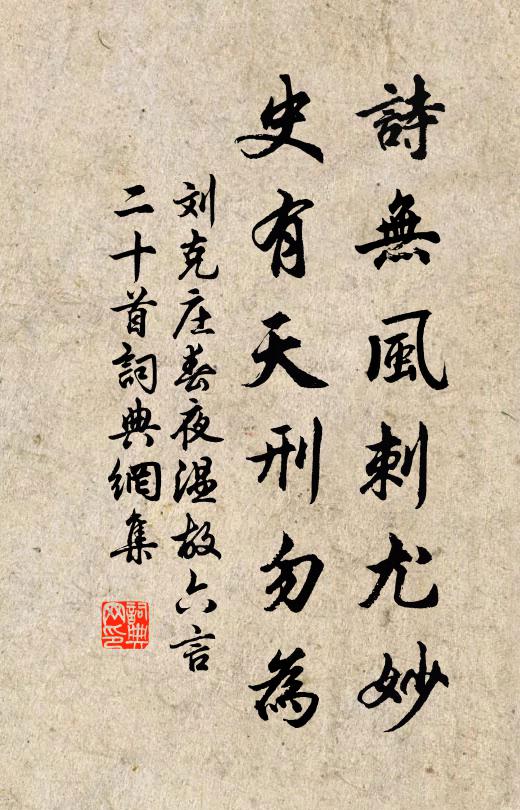 詩無風刺尤妙
史有天刑勿為
刘克庄春夜温故六言
二十首詞典網集
詞典网印